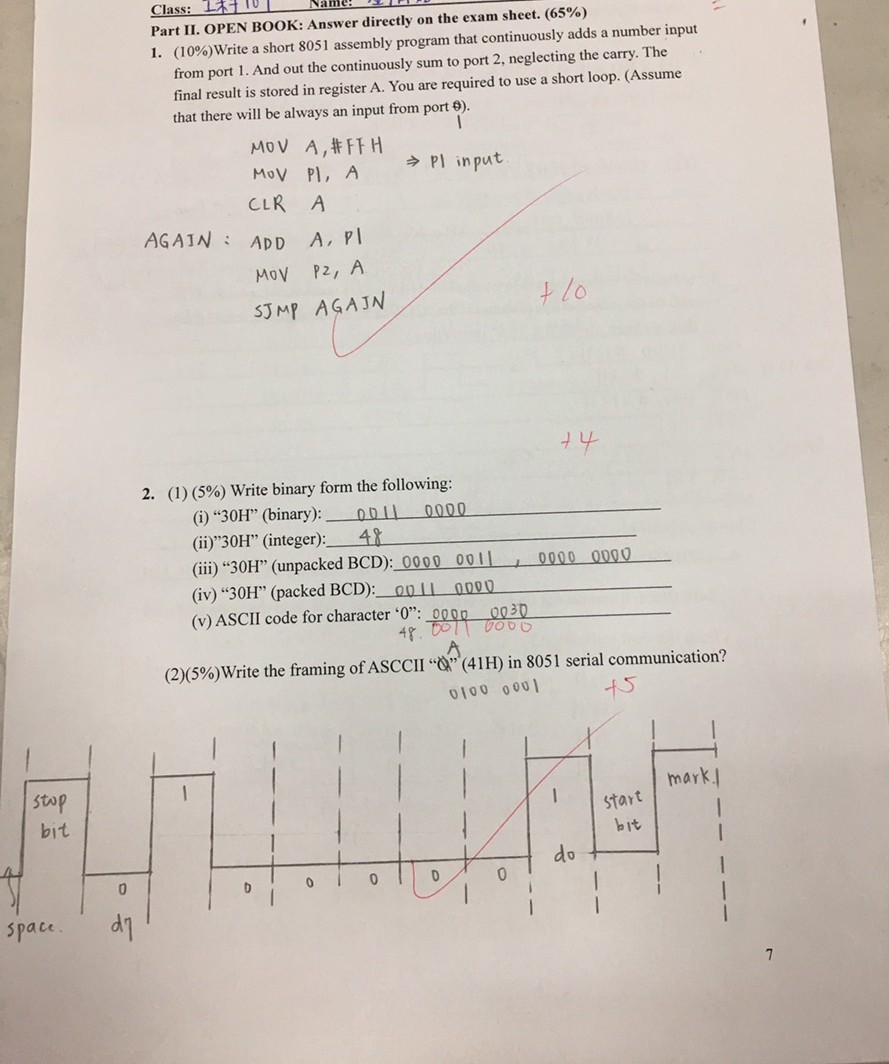 Class: 101 Name:
Part II. OPEN BOOK: Answer directly on the exam sheet. (65%)
1. (10%)Write a short 8051 assembly program that continuously adds a number input
from port 1. And out the continuously sum to port 2, neglecting the carry. The
final result is stored in register A. You are required to use a short loop. (Assume
that there will be always an input from port 0).
1
MOV A,#FFH
MOV P1, A ⇒ P1 input
CLR A
AGAIN : ADD A, P1
MOV P2, A
SJMP AGAIN
+10
+4
2. (1) (5%) Write binary form the following:
(i) “30H” (binary): 0011 0000
(ii)”30H” (integer): 48
(iii) “30H” (unpacked BCD): 0000 0011 , 0000 0000
(iv) “30H” (packed BCD): 0011 0000
(v) ASCII code for character ‘0”: 0000 0030
48. 0011 0000
A
(2)(5%)Write the framing of ASCCII “” (41H) in 8051 serial communication?
0100 0001 +5
stop bit 0 1 0 0 0 0 0 1 start bit mark
space. d7 d0
7